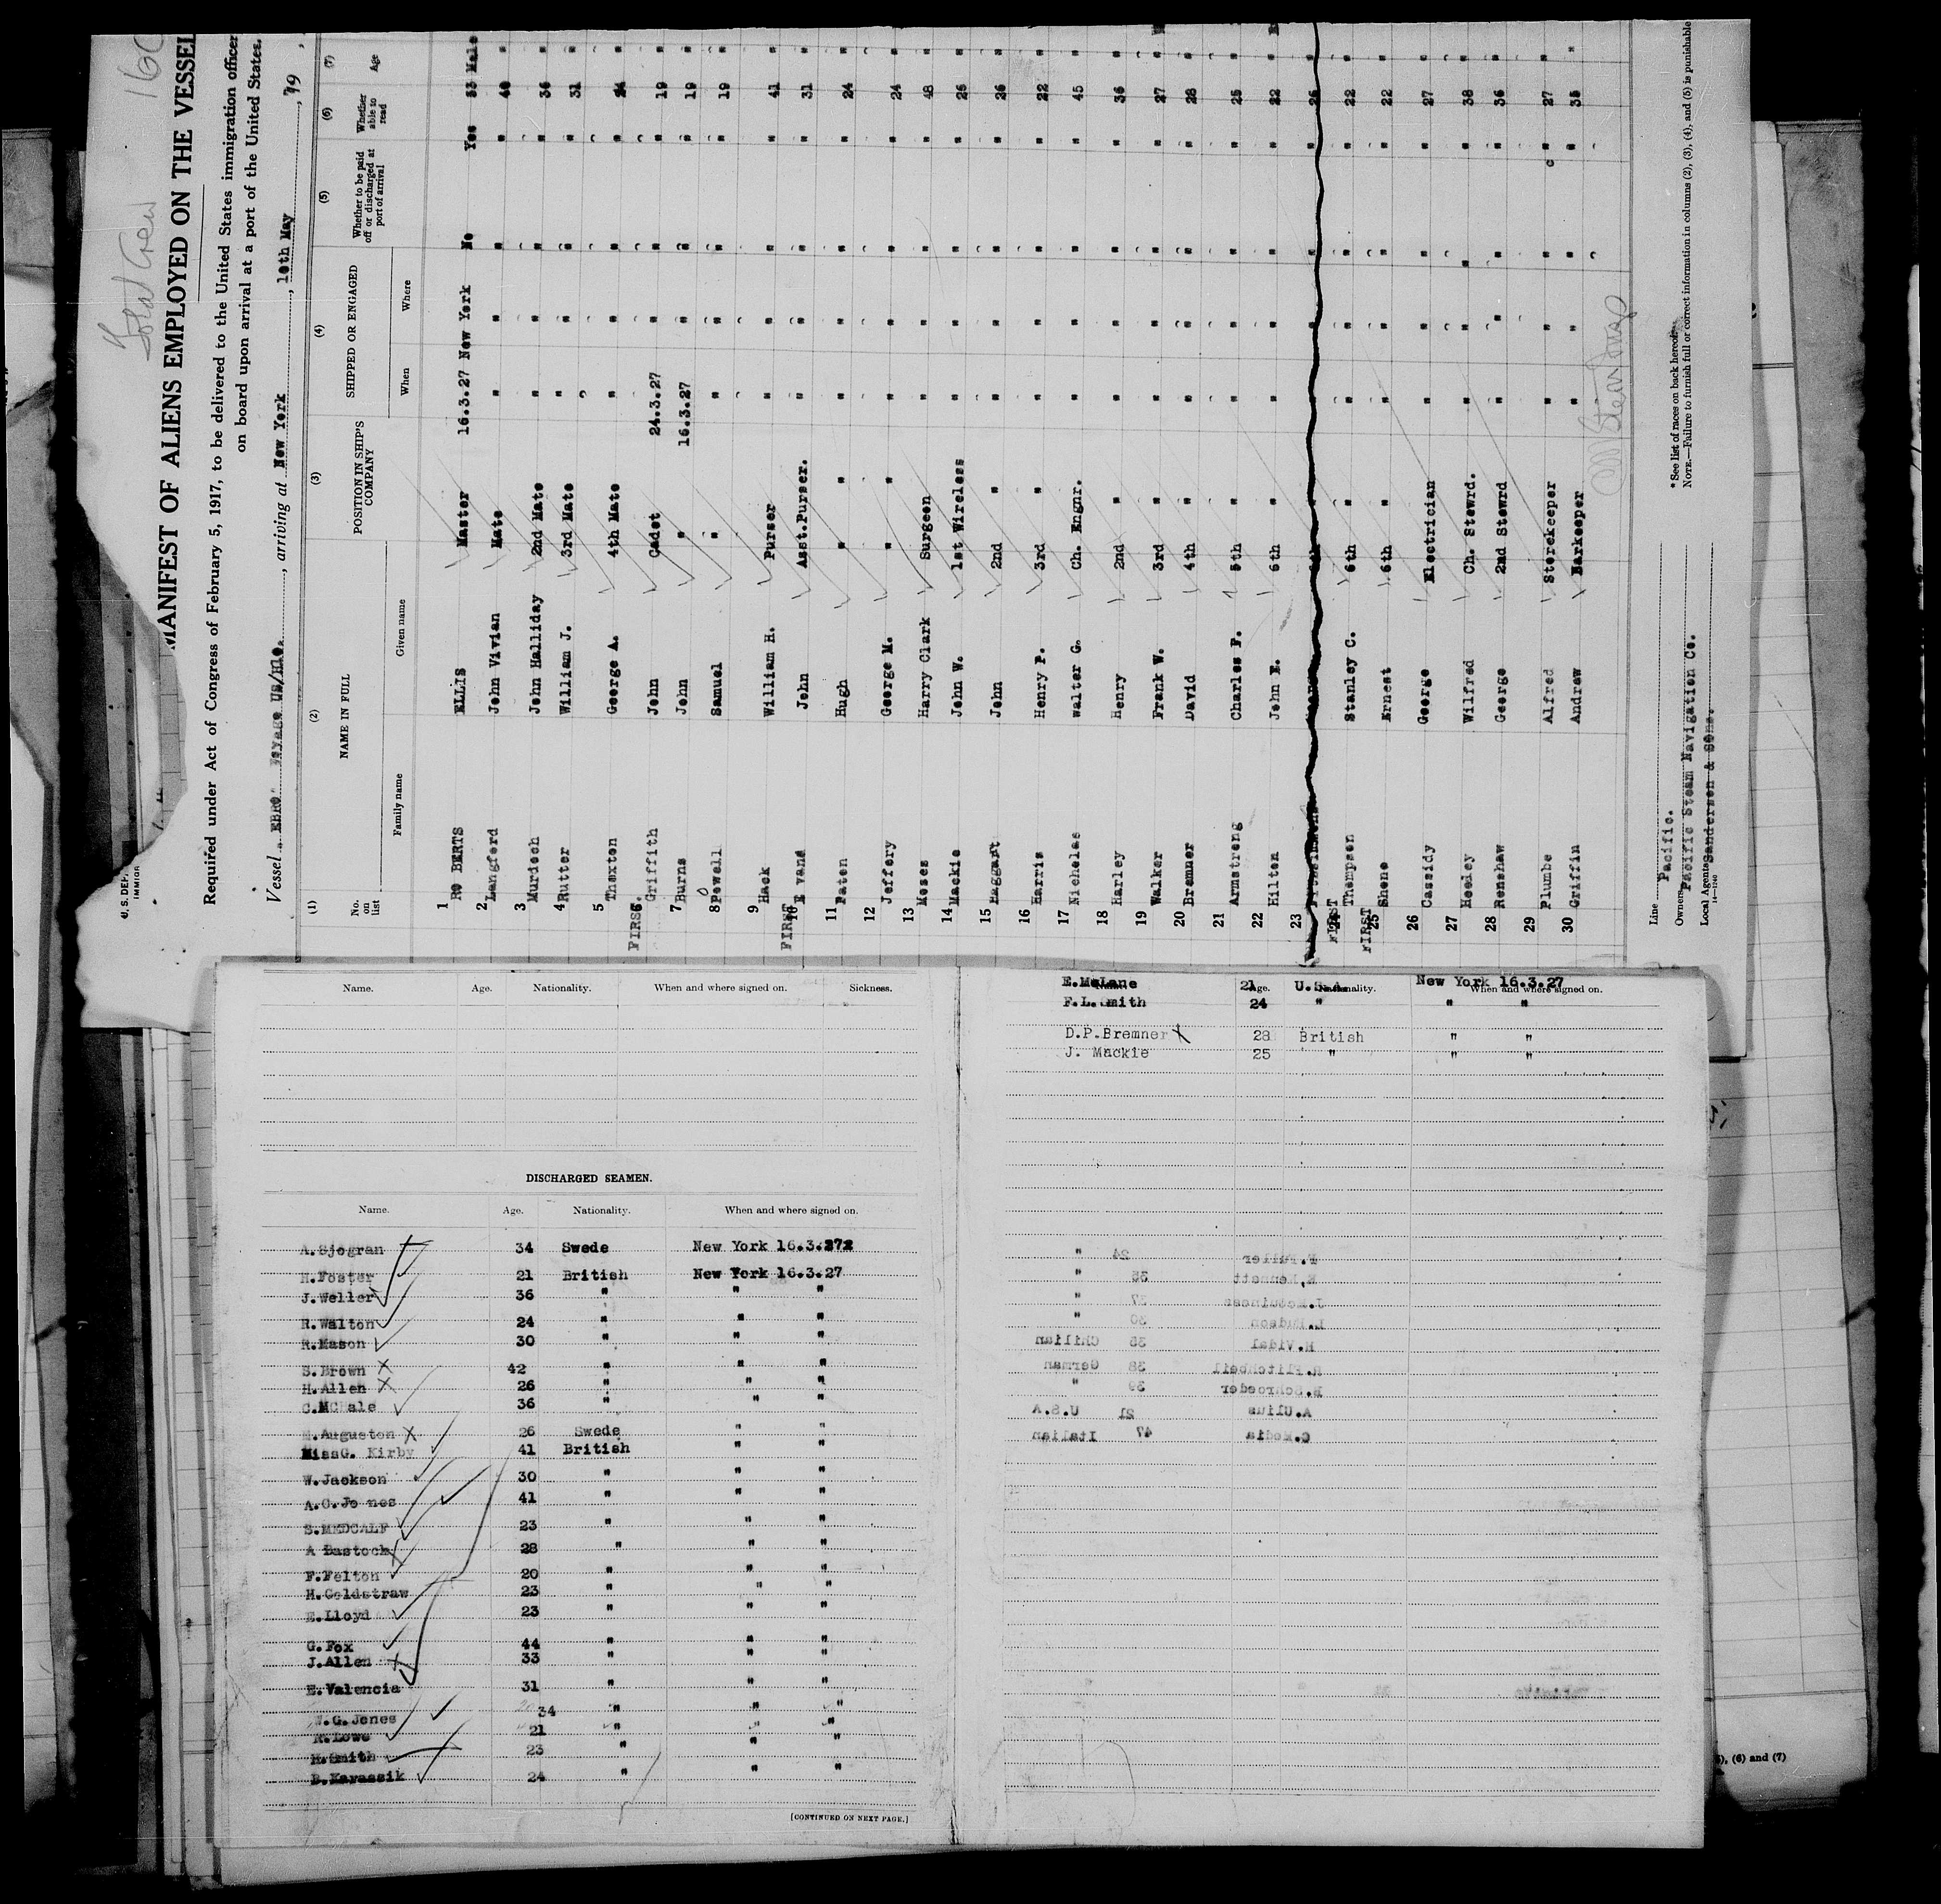 Total Crew 160
MANIFEST OF ALIENS EMPLOYED ON THE VESSEL
U.S. DEP.
IMMIGR
Required under Act of Congress of February 5, 1917, to be delivered to the United States immigration officer
on board upon arrival at a port of the United States.
Vessel EBRO , arriving at New York , 10th May , 19
(1) (2) (3) (4) (5) (6) (7)
No. on list NAME IN FULL POSITION IN SHIP'S COMPANY SHIPPED OR ENGAGED Whether to be paid off or discharged at port of arrival Whether able to read Age
Family name Given name When Where
1 RO BERTS ELLIS Master 16.3.27 New York No Yes 53 Male
2 Langford John Vivian Mate " " " " 40 "
3 Murdoch John Halliday 2nd Mate " " " " 36 "
4 Rutter William J. 3rd Mate " " " " 31 "
5 Thaxton George A. 4th Mate " " " " 24 "
FIRST. 6 Griffith John Cadet 24.3.27 " " " 19 "
7 Burns John " 16.3.27 " " " 19 "
8 Powell Samuel " " " " " 19 "
9 Hack William H. Purser " " " " 41 "
FIRST 10 E vans John Asst.Purser. " " " " 31 "
11 Paton Hugh " " " " " " 24 "
12 Jeffery George M. " " " " " " 24 "
13 Moses Harry Clark Surgeon " " " " 48 "
14 Mackie John W. 1st Wireless " " " " 25 "
15 Haggart John 2nd " " " " " 26 "
16 Harris Henry P. 3rd " " " " " 22 "
17 Nicholas Walter G. Ch. Engnr. " " " " 45 "
18 Harley Henry 2nd " " " " " 36 "
19 Walker Frank W. 3rd " " " " " 27 "
20 Bremner David 4th " " " " " 28 "
21 Armstrong Charles F. 5th " " " " " 25 "
22 Hilton John E. 6th " " " " " 22 "
23
FIRST 24 Thompson Stanley C. 6th " " " " " 22 "
FIRST 25 Shone Ernest 6th " " " " " 22 "
26 Cassidy George Electrician " " " " 27 "
27 Hoodey Wilfred Ch. Stewrd. " " " " 38 "
28 Renshaw George 2nd Stewrd " " " " 36 "
29 Plumbe Alfred Storekeeper " " " " 27 "
30 Griffin Andrew Barkeeper " " " " 35 "
Line Pacific.
Owners Pacific Steam Navigation Co.
Local Agents Sanderson & Sons.
14—1240
* See list of races on back hereof.
NOTE.—Failure to furnish full or correct information in columns (2), (3), (4), and (5) is punishable
Name. Age. Nationality. When and where signed on. Sickness.
DISCHARGED SEAMEN.
Name. Age. Nationality. When and where signed on.
A.Sjogran 34 Swede New York 16.3.272
H.Foster 21 British New York 16.3.27
J.Weller 36 " " "
R.Walton 24 " " "
R.Mason 30 " " "
S.Brown 42 " " "
H.Allen 26 " " "
C.MCHale 36 " " "
Auguston 26 Swede " "
MissG. Kirby 41 British " "
W.Jackson 30 " " "
A.C.Jo nes 41 " " "
S.MEDCALF 23 " " "
A Bastock 28 " " "
F.Felton 20 " " "
H.Goldstraw 23 " " "
E.Lloyd 23 " " "
G.Fox 44 " " "
J.Allen 33 " " "
E.Valencia 31 " " "
W.G.Jones 34 " " "
R.Lowe 21 " " "
H.Smith 23 " " "
B.Karassik 24 " " "
[CONTINUED ON NEXT PAGE.]
Age. Nationality. When and where signed on.
E.McLane 21 U.S.A. New York 16.3.27
F.L.Smith 24 " " "
D.P.Bremner 28 British " "
J. Mackie 25 " " "
Fuller 24 "
Bennett 35 "
J.McGuiness 37 "
L.Hudson 30 "
H.Vidal 35 Chilian
H.Flitchbeil 38 German
Schroeder 39 "
A.Ulius 21 U.S.A
C.Media 47 Italian
), (6) and (7)